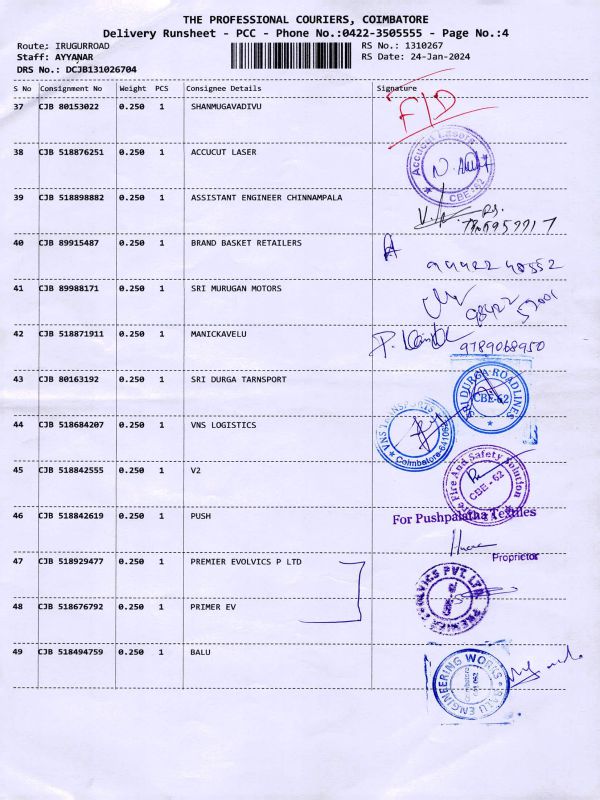 THE PROFESSIONAL COURIERS, COIMBATORE
Delivery Runsheet - PCC - Phone No.:0422-3505555 - Page No.:4
Route: IRUGURROAD
RS No.: 1310267
Staff: AYYANAR
RS Date: 24-Jan-2024
DRS No.: DCJB131026704
S No Consignment No Weight PCS Consignee Details Signature
37 CJB 80153022 0.250 1 SHANMUGAVADIVU F/D
38 CJB 518876251 0.250 1 ACCUCUT LASER
Accucut Lasers
CBE-62
39 CJB 518898882 0.250 1 ASSISTANT ENGINEER CHINNAMPALA
40 CJB 89915487 0.250 1 BRAND BASKET RETAILERS
94422 40552
41 CJB 89988171 0.250 1 SRI MURUGAN MOTORS
98422
42 CJB 518871911 0.250 1 MANICKAVELU
9789068950
43 CJB 80163192 0.250 1 SRI DURGA TARNSPORT
SRI DURGA ROADLINES
CBE-62
44 CJB 518684207 0.250 1 VNS LOGISTICS
VNS
Coimbatore
45 CJB 518842555 0.250 1 V2
Fire And Safety Solution
CBE-62
46 CJB 518842619 0.250 1 PUSH
For Pushpalatha Textiles
Proprietor
47 CJB 518929477 0.250 1 PREMIER EVOLVICS P LTD
PVT. LTD
48 CJB 518676792 0.250 1 PRIMER EV
49 CJB 518494759 0.250 1 BALU
BALU ENGINEERING WORKS